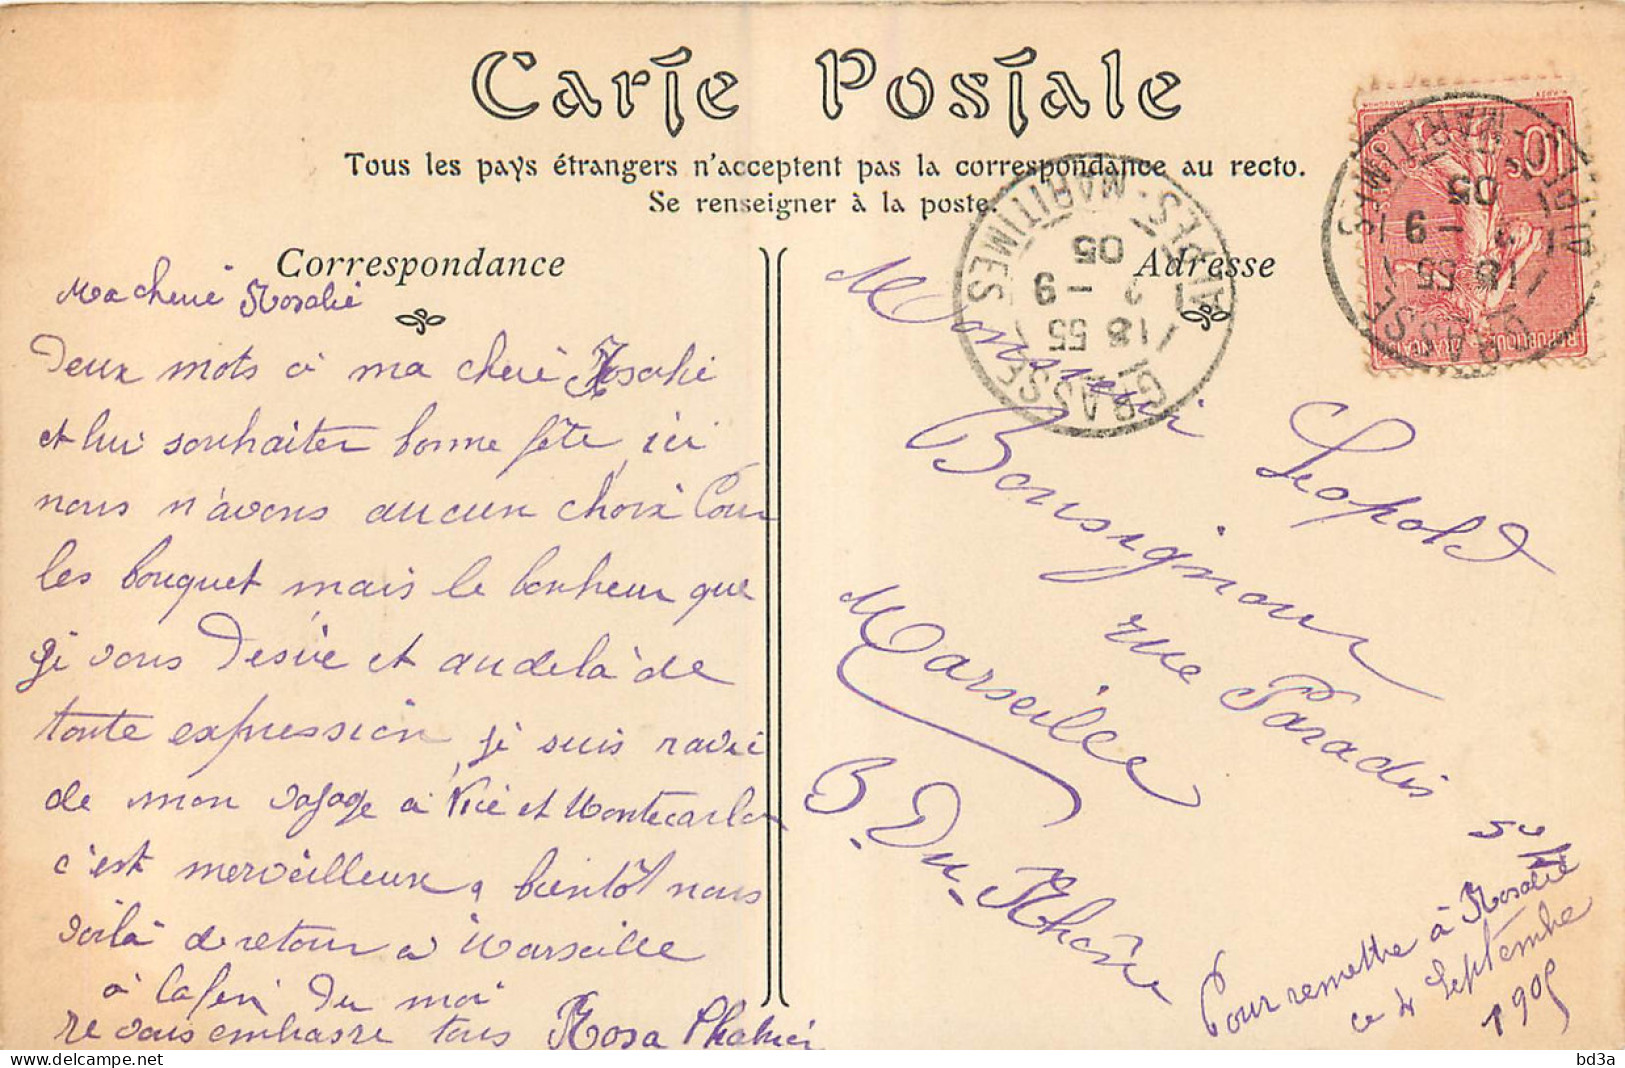 Carte Postale
Tous les pays étrangers n'acceptent pas la correspondance au recto.
Se renseigner à la poste.
Correspondance
Adresse
Ma cherie Rosalie
Deux mots a ma cheri Rosalie
et lui souhaiter bonne fête, ici
nous n'avons aucun choix Pour
les bouquet mais le bonheur que
je vous desire et audelà de
toute expression, je suis ravie
de mon vojage a Nice et Montecarlo
c'est merveilleux, bientôt nous
voilà de retour a Marseille
à la fin du moi
je vous embrasse tous Rosa
Monsieur Leopold
Bonsignour
rue Paradis
Marseille
B. Du Rhône
Pour remettre à Rosalie
ce 4 Septembre
1905
GRASSE
ALPES-MARITIMES
18 55
2 - 9
05
GRASSE
ALPES-MARITIMES
18 55
2 - 9
05
10c
POSTES
REPUBLIQUE FRANÇAISE
bd3a